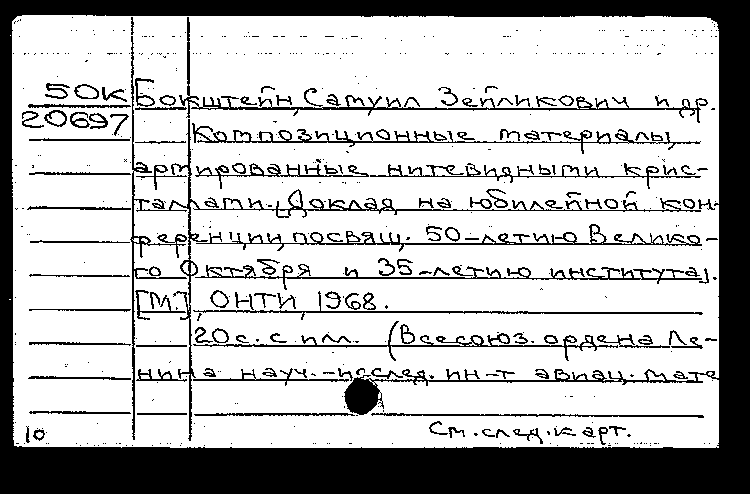 50К [Бокштейн, Самуил Зейликович и др.
20697
Композиционные материалы,
армированные нитевидными крис-
таллами. [Доклад на юбилейной кон-
ференции, посвящ. 50-летию Велико-
го Октября и 35-летию института].
[М.], ОНТИ, 1968.
20 с. с илл. (Всесоюз. ордена Ле-
нина науч.-исслед. ин-т авиац. мате
См. след. карт.
10